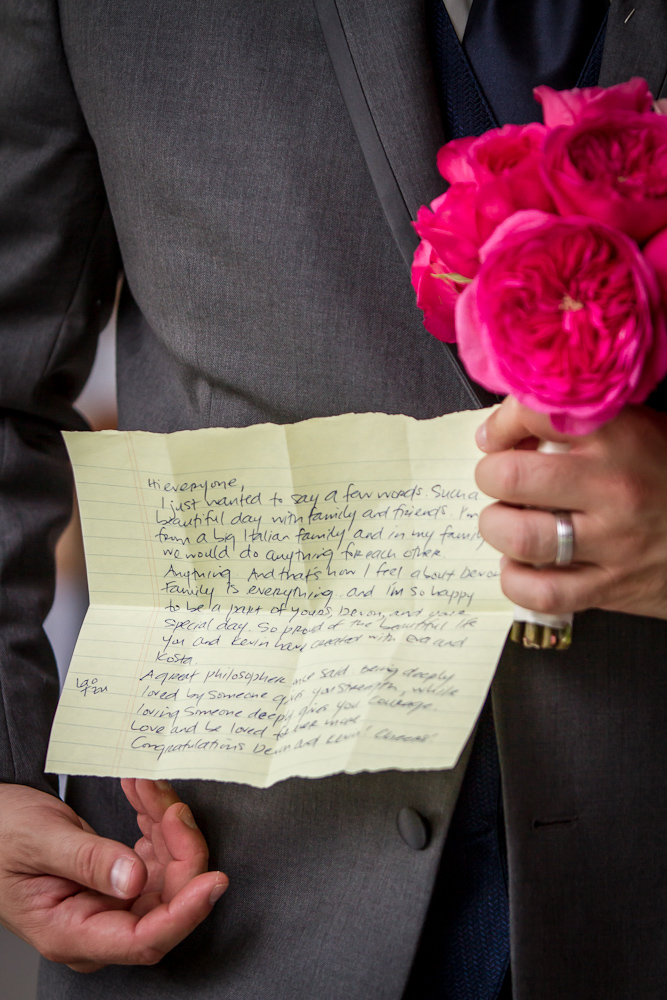 Hi everyone,
I just wanted to say a few words. Such a
beautiful day with family and friends. I'm
form a big Italian family and in my family
we would do anything for each other
Anything. And that's how I feel about Devon
Family is everything. and I'm so happy
to be a part of yours, Devon, and your
special day. So proud of the beautiful life
you and Kevin have created with Eva and
Kosta.
A great philosopher once said Being deeply
Lao
Tzu
loved by someone gives you strength, while
loving someone deeply gives you courage.
Love and be loved forever more
Congratulations Devon and Kevin!